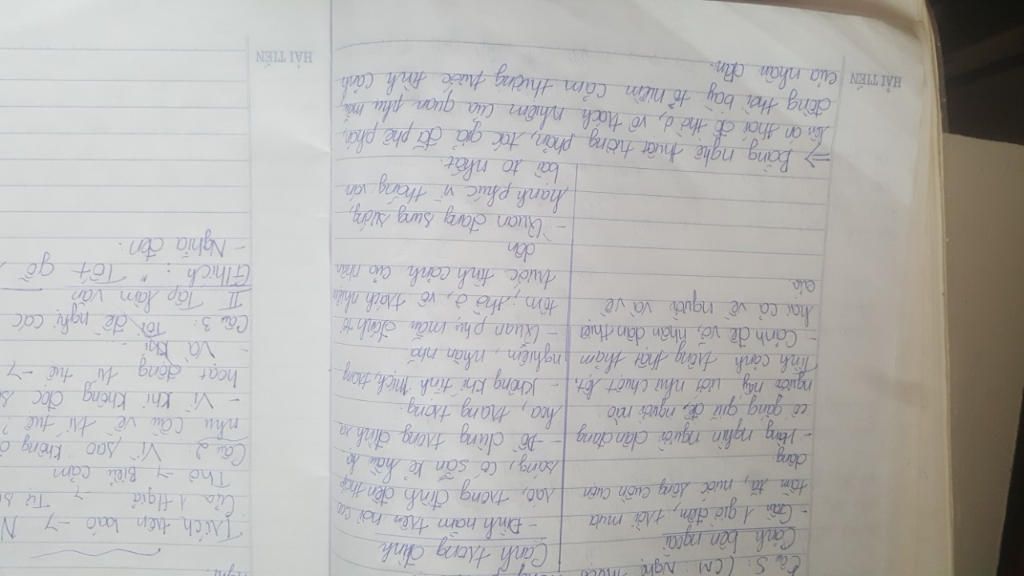 Câu 5: (CM: Nghệ thuật
Cảnh bên ngoài
- Gần 1 giờ đêm, trời mưa
tầm tã, nước sông cuồn cuộn
dâng
- Hàng nghìn người dân đang
cố gắng giữ đê, người nào
người nấy ướt như chuột lột,
tình cảnh trông thật thảm
- Cảnh đê vỡ, nhân dân thiệt
hại cả về người và về
của
Cảnh trong đình
- Đình nằm trên nơi cao
ráo, trong đình đèn thắp
sáng, có sẵn kẻ hầu hạ
- Đồ dùng trong đình xa
hoa, trang trọng.
- Không khí tĩnh mịch, trang
nghiêm, nhàn nhã
- Quan phụ mẫu đánh tổ
tôm, thờ ơ, vô trách nhiệm
trước tình cảnh của nhân
dân
- Quan đang sung sướng,
hạnh phúc vì thắng ván
bài to nhất.
=> Bằng nghệ thuật tương phản, tác giả đã phê phán,
lên án thái độ thờ ơ, vô trách nhiệm của quan phụ mẫu
đồng thời bày tỏ niềm cảm thương trước tình cảnh
của nhân dân.
HẢI TIẾN
Trích trên báo -> N
Của 1 tgiả -> Tự s
Thơ -> Biểu cảm
Câu 2: Vì sao không
nhu cầu về trí tuệ?
- Vì khi không đọc
hoạt động trí tuệ ->
- Và
Câu 3: Tôi đề nghị các
II Tập làm văn
Gthích: " Tốt gỗ
- Nghĩa đen.
HẢI TIẾN